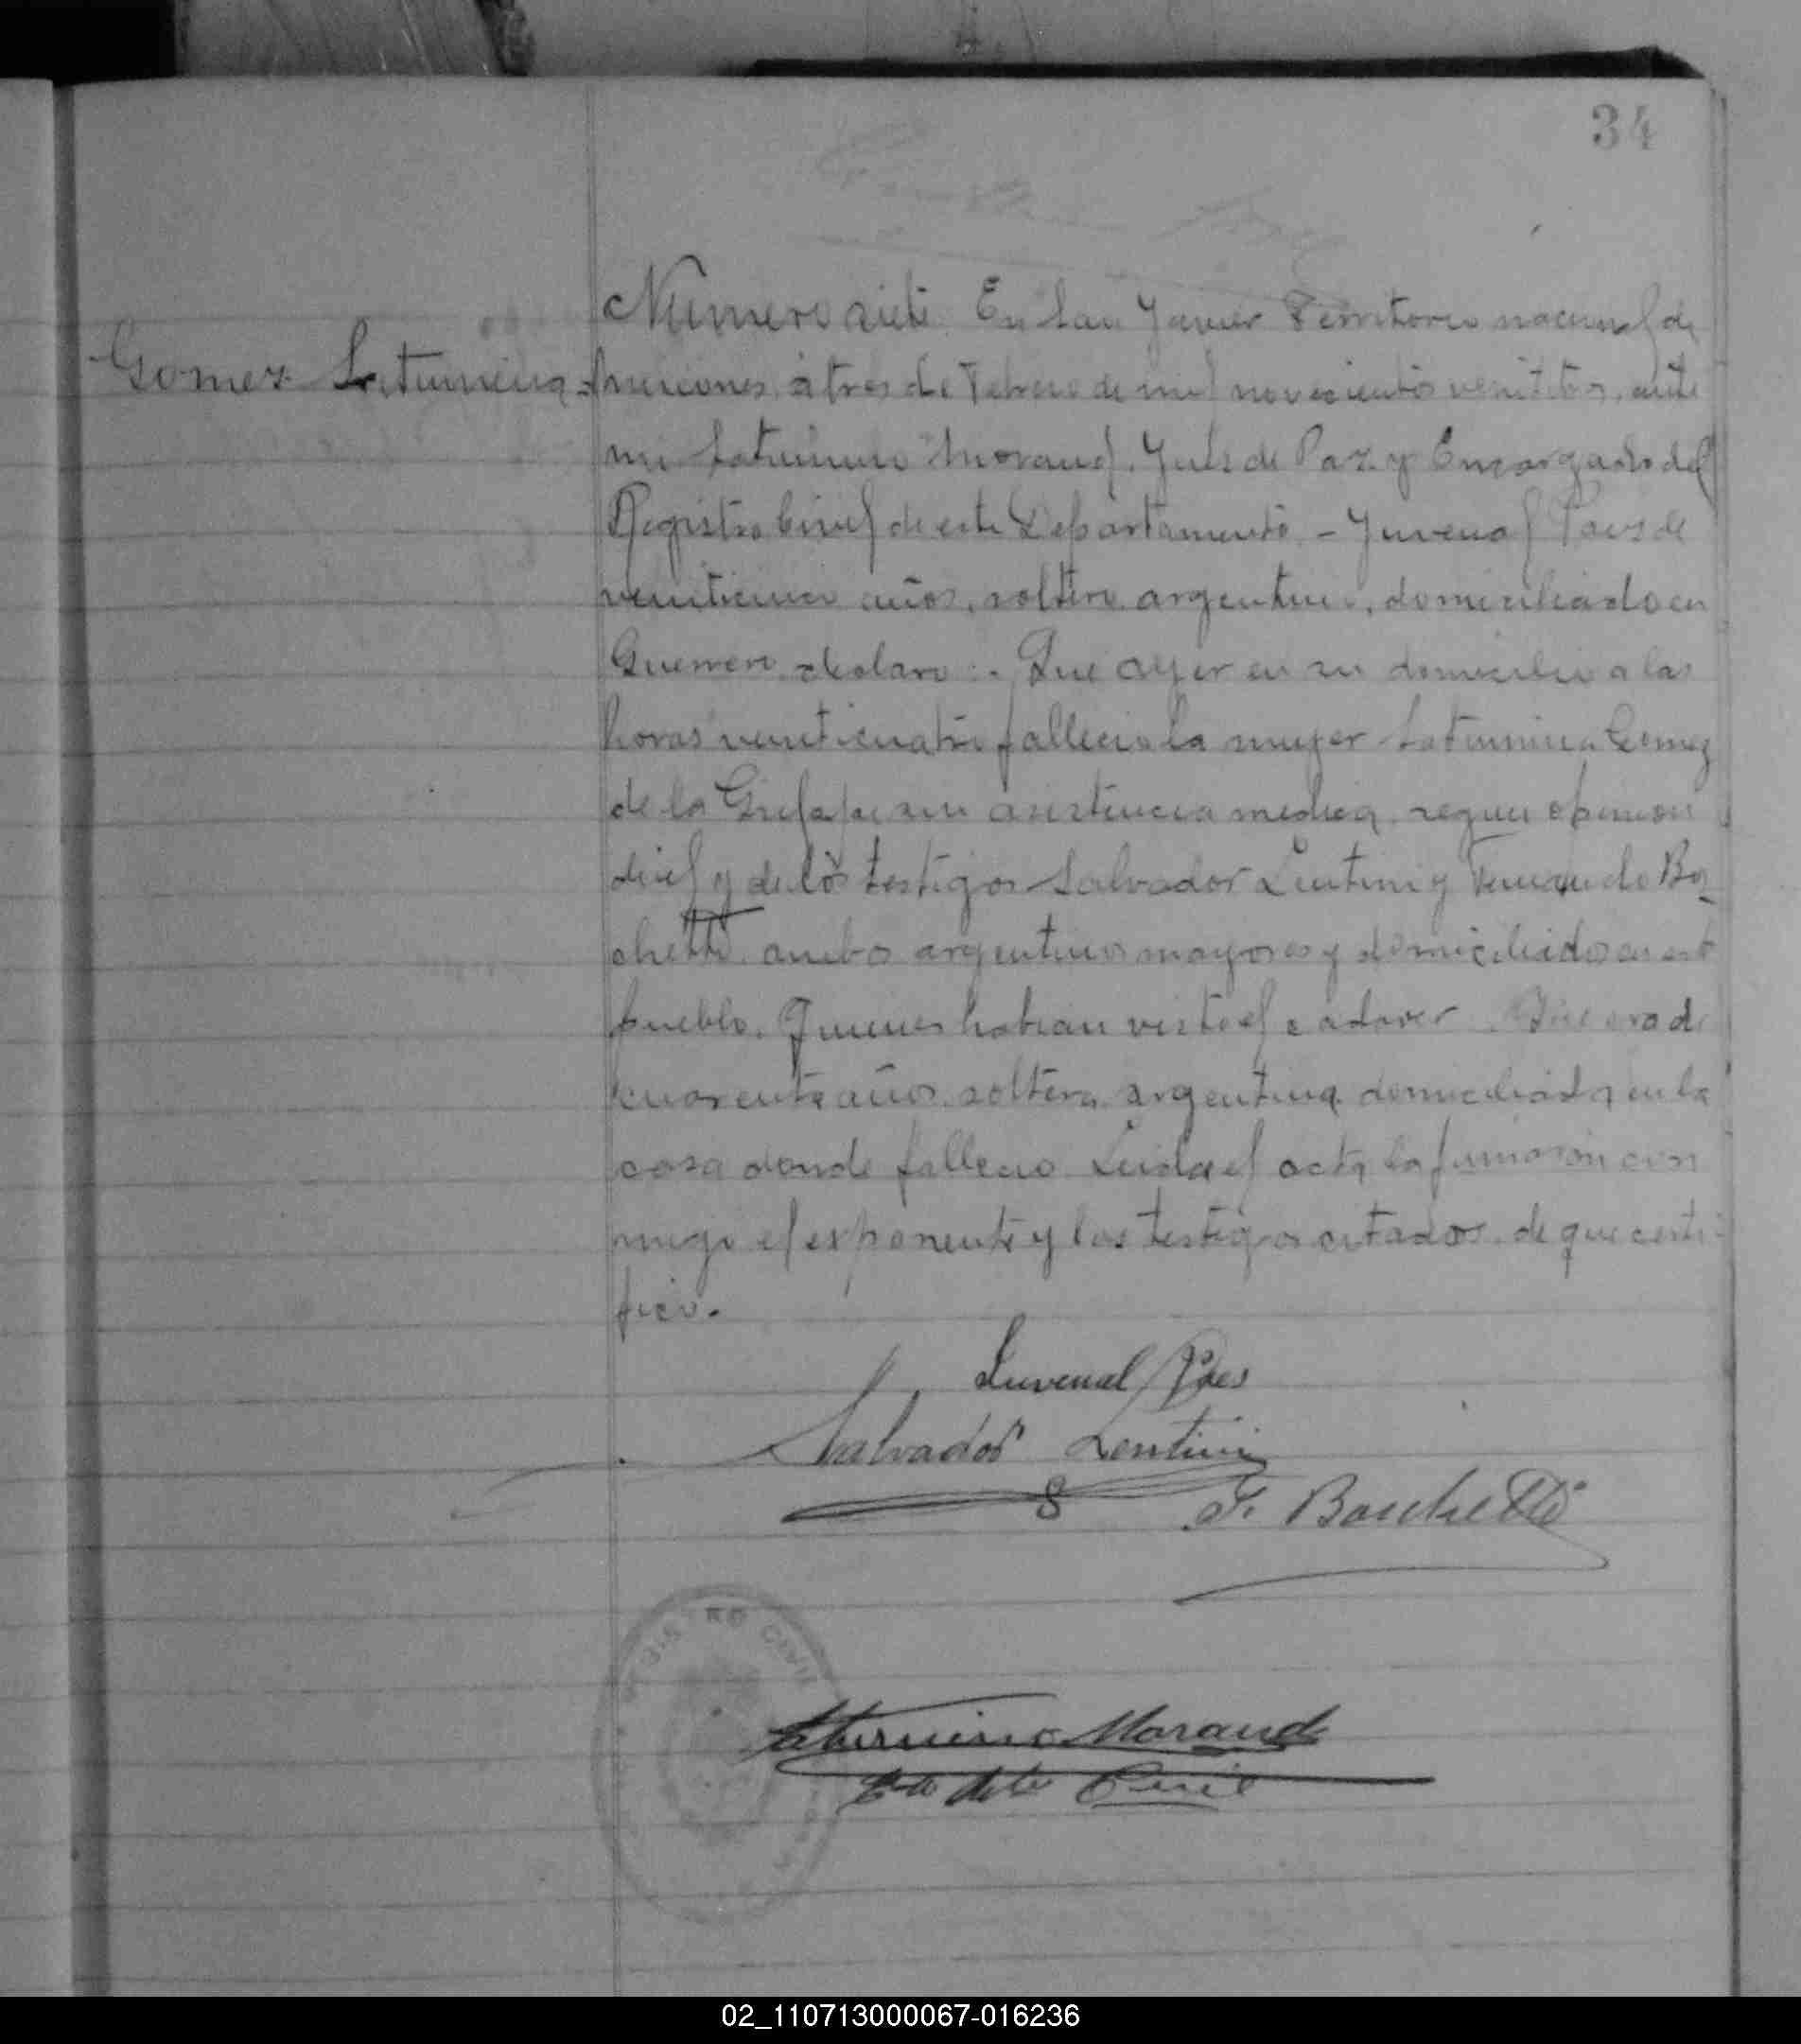 34
Numero siete. En San Javier Territorio nacional de
Gomez Saturnina = misiones, á tres de Febrero de mil novecientos veintitres, ante
mi Saturnino Morand, Juez de Paz y Encargado del
Registro Civil de este Departamento - Juvenal Paes de
veinticinco años, soltero, argentino, domiciliado en
Guerrero declaro :. Que ayer en su domicilio a las
horas veinticuatro fallecio la mujer Saturnina Gomez
de la sin asistencia medica segun opinion
del y de los testigos Salvador Lentini y Fernando Bo_
chetti, ambos argentinos mayores y domiciliados en este
pueblo. Quienes habian visto el cadaver. Que era de
cuarenta años, soltera, argentina domiciliada en la
casa donde fallecio Leida el acta la firmaron con
migo el exponente y los testigos citados, de que certi-
fico.
Juvenal Paes
Salvador Lentini
F. Boschetti
REGISTRO CIVIL
Saturnino Morand
02_110713000067-016236